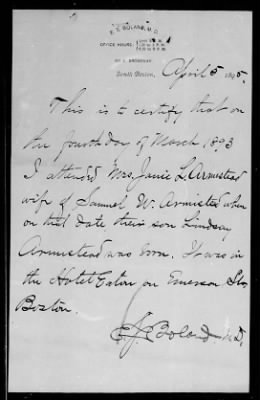 E. S. BOLAND, M. D.
OFFICE HOURS
BROADWAY
South Boston, April 5 1895.
This is to certify that on
the fourth day of March 1893
I attended Mrs. Janie L. Armistead
wife of Samuel W. Armistead when
on that date their son Lindsay
Armistead was born. It was in
the Hotel Eaton on Emerson St,
Boston.
E S Boland M.D.